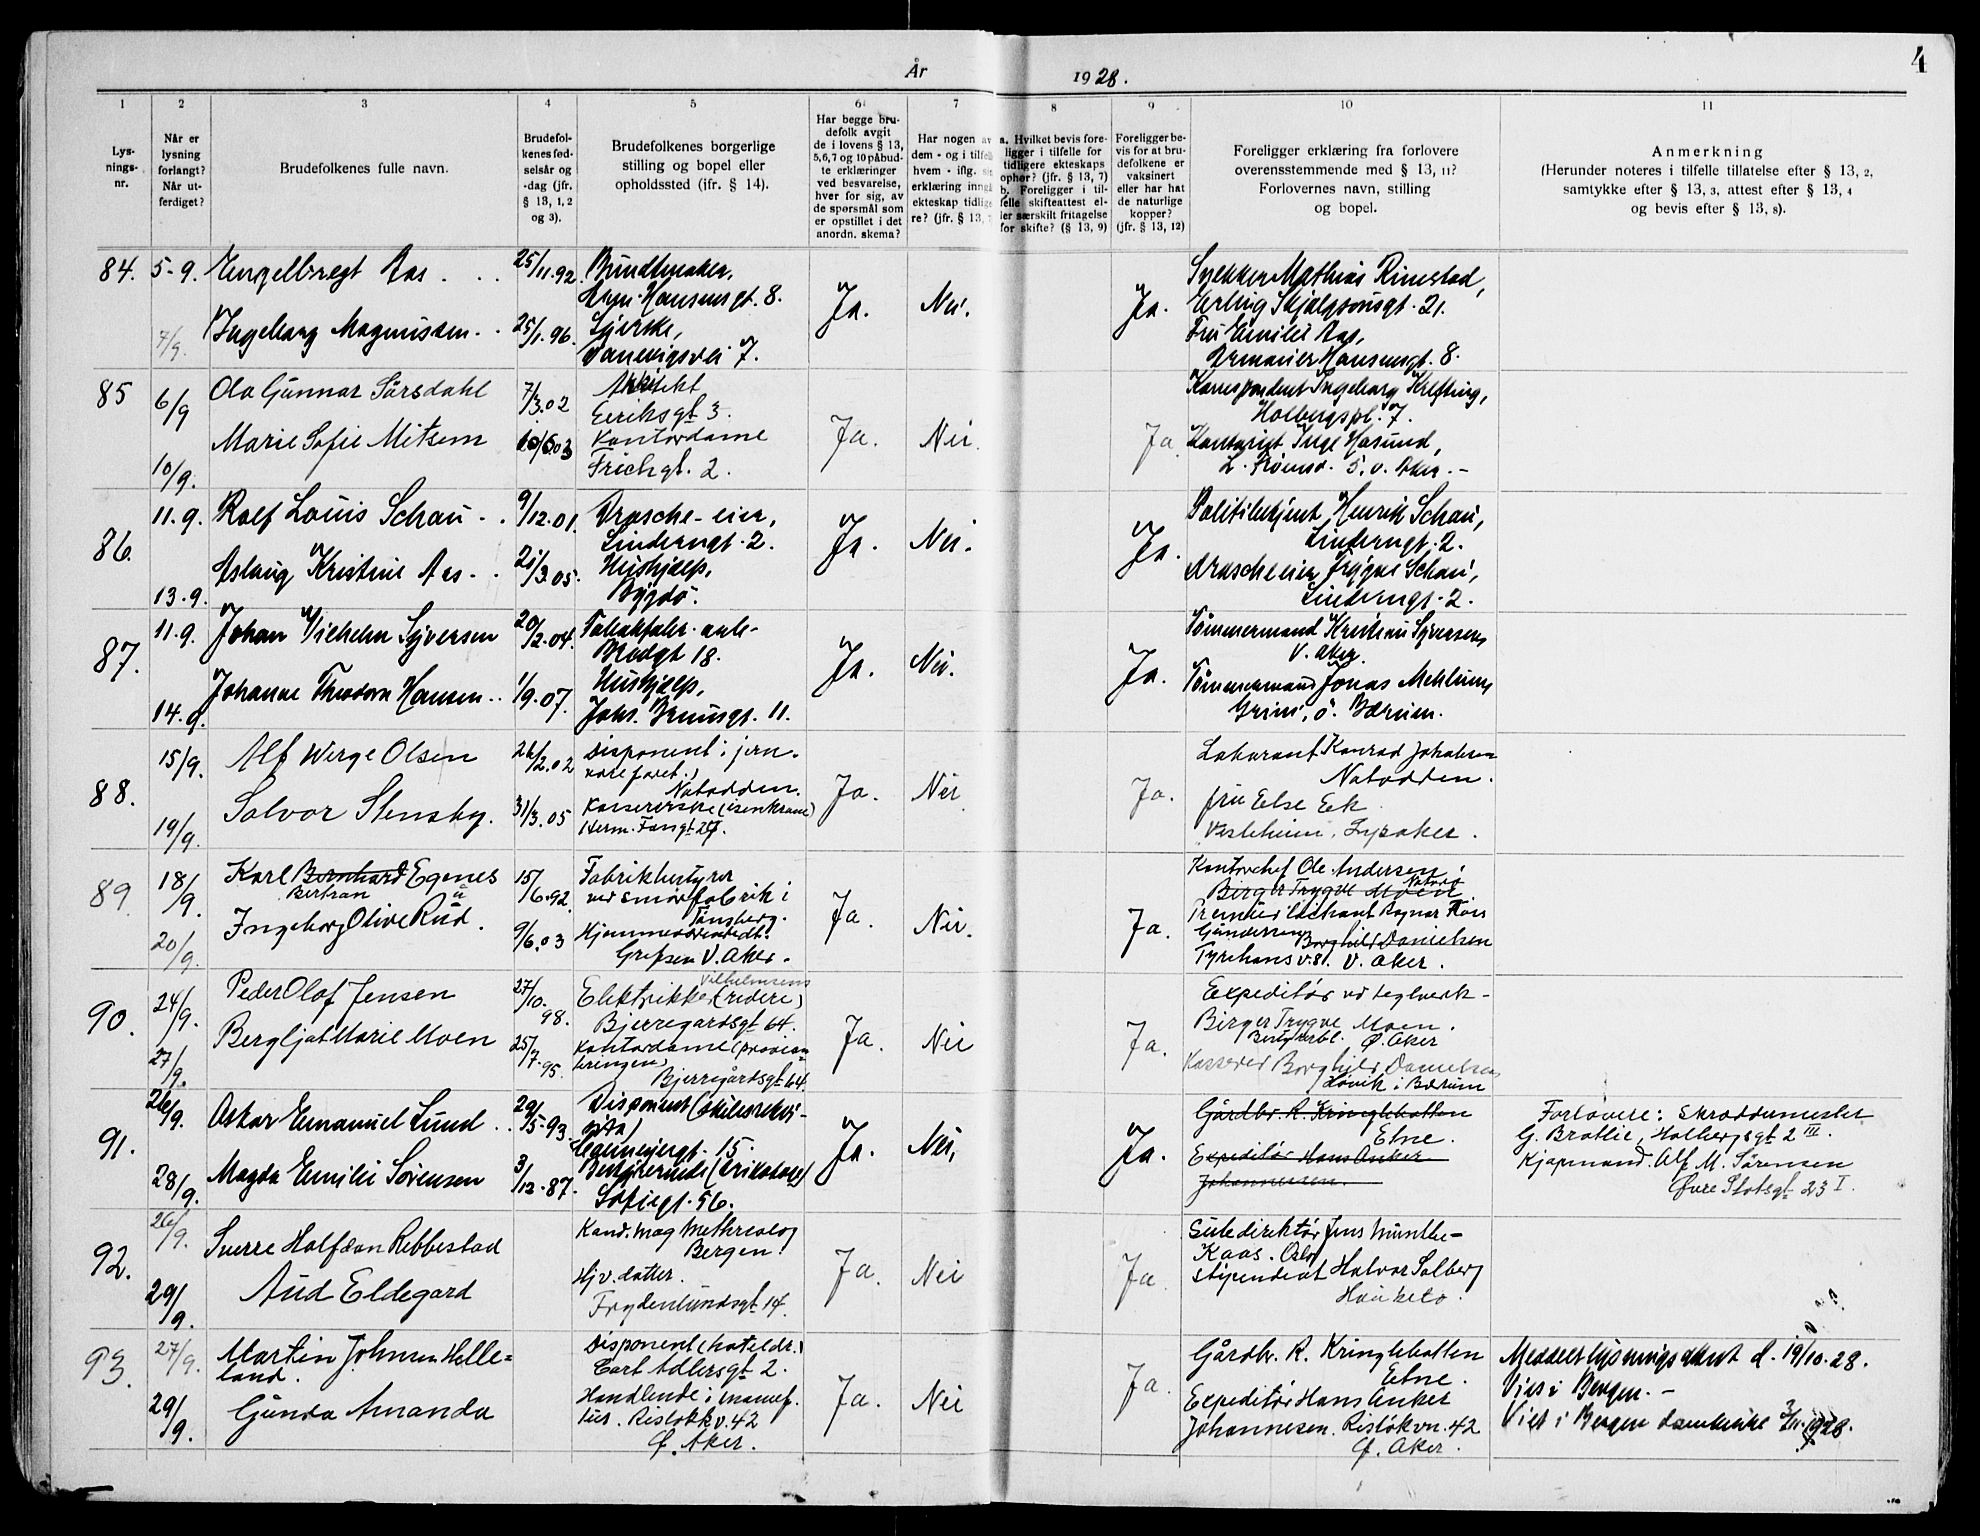 4
År 1928.
1 2 3 4 5 6 7 8 9 10 11
Lysningsnr.
Når er lysning forlangt? Når utferdiget?
Brudefolkenes fulle navn.
Brudefolkenes fødselsår og -dag (jfr. § 13, 1, 2 og 3).
Brudefolkenes borgerlige stilling og bopel eller opholdssted (ifr. § 14).
Har begge brudefolk avgit de i lovens § 13, 5,6,7 og 10 påbudte erklæringer ved besvarelse, hver for sig, av de spørsmål som er opstillet i det anordn. skema?
Har nogen av dem - og i tilfelle hvem - iflg. erklæring inngå ekteskap tidligere? (jfr. § 13,
a. Hvilket bevis foreligger i tilfelle for tidligere ekteskaps ophør? (jfr. § 13, 7) b. Foreligger i tilfelle skifteattest eller særskilt fritagelse for skifte? (§ 13, 9)
Foreligger bevis for at brudefolkene er vaksinert eller har hat de naturlige kopper? (jfr. § 13, 12)
Foreligger erklæring fra forlovere overensstemmende med § 13, 11? Forlovernes navn, stilling og bopel.
Anmerkning
(Herunder noteres i tilfelle tillatelse efter § 13, 2, samtykke efter § 13, 3, attest efter § 13, 4 og bevis efter § 13, 8).
84. 5-9. Engelbregt Aas 25/11.92. Buntmaker, Arm. Hansensgt. 8.
7/9. Ingeborg Magnussen 25/1.96. Syerske, Danevigsvei 7.
Ja. Nei. Ja.
Snekker Mathias Rimestad,
Erling Skjalgsonsgt. 21.
Fru Emilie Aas,
Armauer Hansensgt. 8.
85 6/9 Ola Gunnar Sörsdahl 7/3.02 Arkitekt Eeriksgt 3.
10/9. Marie Sofie Mitsem Kontordame Frichgt. 2.
Ja. Nei. Ja
Korrespondent Ingeborg Krefting,
Holbergspl. 7.
Kontorist Inge Hasund,
86. 11.9. Rolf Louis Schau 9/12.01. Drosche-eier, Linderngt. 2.
13.9. Aslaug Kristine Aas 21/3.05. Hushjælp, Bygdö.
Ja. Nei. Ja.
Politibetjent Henrik Schau,
Linderngt. 2.
Droscheeier Trygve Schau,
Linderngt. 2.
87. 11.9. Johan Vilhelm Syversen 20/2.04. Bredgt 18.
14.9. Johanne Theodora Hansen 1/9.07. Hushjælp, Johs. Brunsgt. 11.
Ja. Nei. Ja.
Tömmermand Kristian Syversen,
V. Aker.
Tömmermand Jonas Mehlum,
Grini, ö. Bærum.
88. 15/9. Alf Werge Olsen 26/2.02 Disponent i jernvareforet., Notodden.
19/9. Solvor Stensby. 31/3.05 Kassererske (isenkram)
Ja. Nei Ja.
Laborant Konrad Jakobsen
Notodden.
fru Else Eek
Vesleheim, Lysaker.
89. 18/9. Karl Bernhard Egenes 15/6.92. Fabrikbestyrer ved smörfabrik i Tønsberg.
Bertran
20/9. Ingeborg Olive Rud. 9/6.03 Hjemmeværende dt. Grefsen V. Aker.
Ja Nei. Ja.
Kontorchef Ole Andersen,
Birger Trygve Moen
Premierløitnant Ragnar
Gundersen Borghild Danielsen
Tyrihans v. 8. V. Aker.
90. 24/9. Peder Olof Jensen 27/10.98. Elektriker (Vilhelmsens rederi) Bjerregardsgt 64.
27/9. Bergljot Marie Moen 25/7.95. Kontordame (provianteringen) Bjerregårdsgt 64.
Ja. Nei Ja.
Expeditör vd teglverk -
Birger Trygve Moen.
Ø. Aker
Kasserer Borghild Danielsen
Høvik i Bærum
91. 26/9. Oskar Emanuel Lund 29/5-93. Disponent
28/9. Magda Emilie Sörensen 3/12-87. Sofiegt. 56.
Ja. Nei, Ja.
Gårdbr. R. Kringlebotten
Etne.
Expeditör Hans Anker
Johannesen.
Forlovere: Skræddermester
G. Bratlie, Holbergsgt 2 III.
Kjøpmand. Alf M. Sörensen
Øvre Slotsgt 23 I.
92. 26/9. Sverre Halfdan Rebbestad Kand. mag Bergen
29/9. Aud Eldegard Hjv. datter. Frydenlundsgt 14.
Ja. Nei Ja
Sutedirektör Jens Munthe-
Kaas. Oslo
stipendiat Halvor Solberg
Hauketo.
93. 27/9. Martin Johnsen Helleland. Disponent (hoteldr.) Cort Adlersgt 2.
29/9. Gunda Amanda Handlende i manuf. Risløkkv. 42 Ø. Aker.
Ja. Nei Ja.
Gårdbr. R. Kringlebotten
Etne.
Expeditör Hans Anker
Johannesen. Risløkvn. 42
Ø. Aker.
Meddelt lysningsattest d. 19/10.28.
Vies i Bergen.-
Viet i Bergen domkirke 3/11-1928.